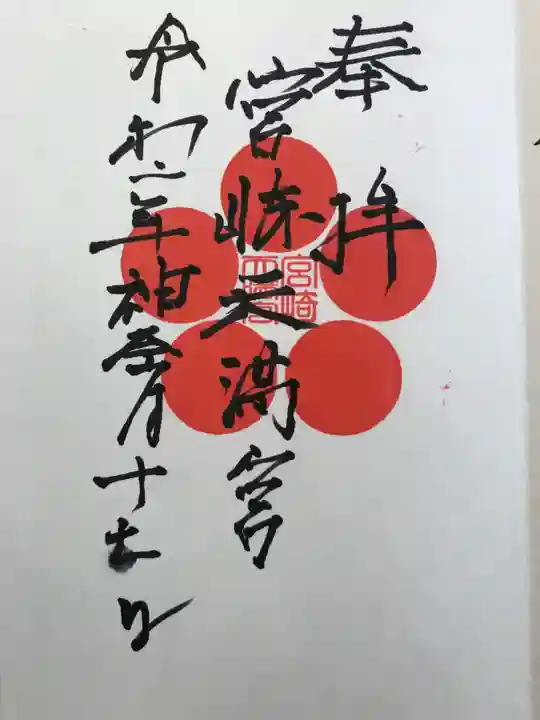 奉拝
宮崎天満宮
宮崎天満宮
令和二年神奈月十七日